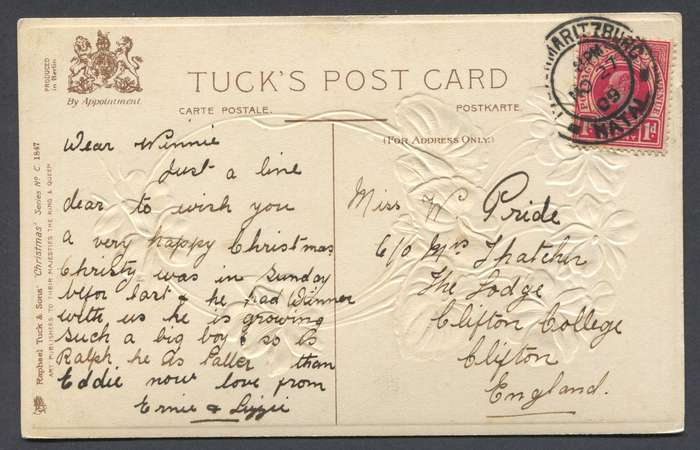 PRODUCED
in Berlin
By Appointment
TUCK'S POST CARD
CARTE POSTALE.
POSTKARTE.
(FOR ADDRESS ONLY.)
MARITZBURG
PM
NO 27
09
NATAL
1d
Raphael Tuck & Sons' "Christmas" Series No C 1847
ART PUBLISHERS TO THEIR MAJESTIES THE KING & QUEEN
Dear Winnie
Just a line
dear to wish you
a very happy Christmas
Christy was in Sunday
befor last & he had Dinner
with us he is growing
such a big boy & so is
Ralph he is taller than
Eddie now love from
Ernie & Lizzie
Miss W Pride
C/o Mrs Thatcher
The Lodge
Clifton College
Clifton
England.